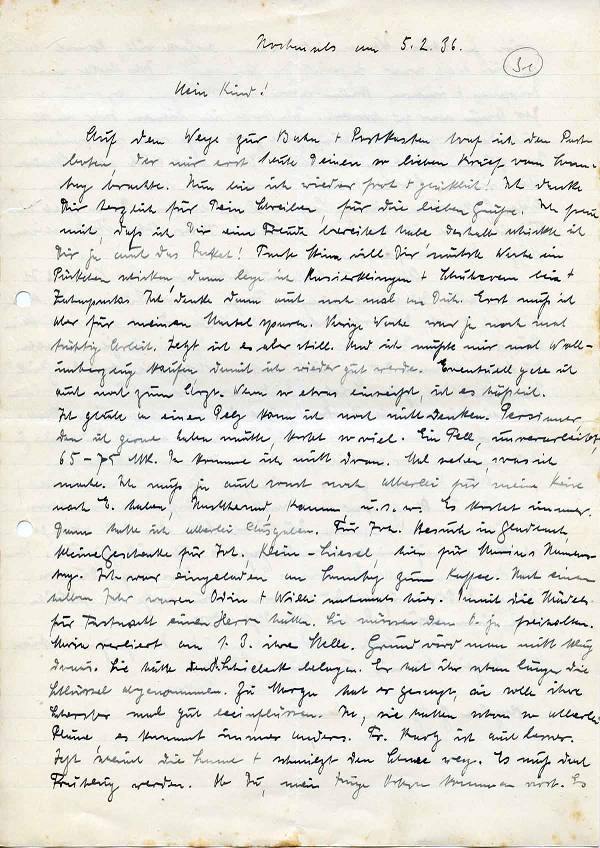 Nochmals am 5.2.36.
31
Mein Kind!
Auf dem Wege zur Bahn + Postkasten traf ich den Post-
boten, der mir erst heute Deinen so lieben Brief vom Sonn-
tag brachte. Nun bin ich wieder froh + glücklich! Ich danke
Dir herzlich für Dein Schreiben, für die lieben Grüße. Ich freu
mich, daß ich Dir eine Freude bereitet habe deshalb schickte ich
Dir ja auch das Paket! Tante will Dir nächste Woche ein
Päckchen schicken, dann lege ich Rasierklingen + bei +
Ich denke dann auch noch mal an Dich. Erst muß ich
aber für meinen Mantel sparen. Vorige Woche war ja noch mal
tüchtig Arbeit. Jetzt ist es aber still. Und ich mußte mir mal Woll-
unterzeug kaufen damit ich wieder gut werde. Eventuell gehe ich
auch noch zum Arzt. Wenn so etwas einreißt, ist es häßlich.
Ich glaube an einen Pelz kann ich noch nicht denken. Persianer,
den ich gerne haben möchte, kostet so viel. Ein Fell, unverarbeitet,
65-75 Mk. Da komme ich nicht dran. Mal sehen, was ich
mache. Ich muß ja auch sonst noch allerlei für meine Reise
nach B. haben, Nachthemd, Kamm, u.s.w. Es kostet immer.
Dann hatte ich allerlei Ausgaben. Für Besuch in Gladbach,
kleine Geschenke für Klein-Liesel, hier für Namens-
tag. Ich war eingeladen am Sonntag zum Kaffee. Nach einem
halben Jahr waren + Willi nochmals hier. Damit die Mädels
für Fastnacht einen Herrn hätten. Sie müssen den ja freihalten.
verliert am 1.3. ihre Stelle. Grund wird man nicht klug
draus. Sie hätte belogen. Er hat ihr schon länger die
Schlüssel abgenommen. Zu hat er gesagt, sie solle ihre
Schwester mal gut beeinflussen. Ja, sie hatten schon so allerlei
Pläne es kommt immer anders. Fr. Kurz ist auch besser.
Jetzt scheint die Sonne + schmilzt den Schnee weg. Es muß doch
Frühling werden. Ob Du, mein Junge Ostern kommen wirst. Es